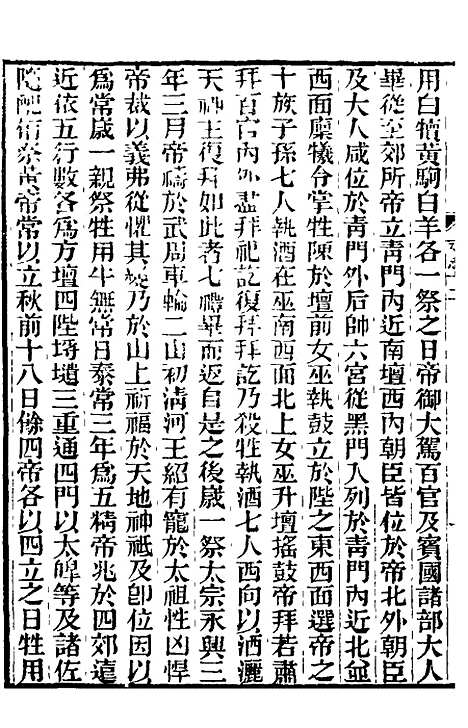 用白犢黃駒白羊各一祭之日帝御大駕百官及賓國諸部大人
畢從至郊所帝立靑門內近南壇西內朝臣皆位於帝北外朝臣
及大人咸位於靑門外后帥六宮從黑門入列於靑門內近北並
西面廩犧令掌牲陳於壇前女巫執鼓立於陛之東西面選帝之
十族子孫七人執酒在巫南西面北上女巫升壇搖鼓帝拜若肅
拜百官內外盡拜祀訖復拜拜訖乃殺牲執酒七人西向以酒灑
天神主復拜如此者七禮畢而返自是之後歲一祭太宗永興三
年三月帝禱於武周車輪二山初淸河王紹有寵於太祖性凶悍
帝裁以義弗從懼其變乃於山上祈福於天地神祇及卽位因以
爲常歲一親祭牲用牛無常日泰常三年爲五精帝兆於四郊遠
近依五行數各爲方壇四陛埓壝三重通四門以太皞等及諸佐
隨配宿祭黃帝常以立秋前十八日餘四帝各以四立之日牲用